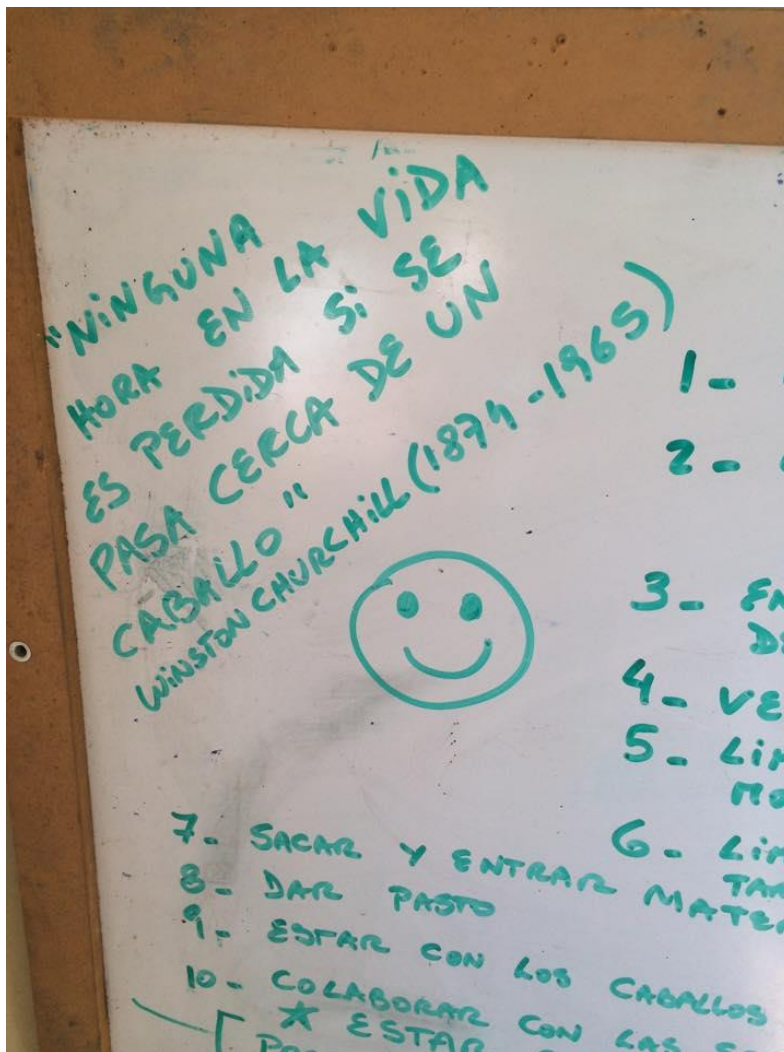 "NiNGUNA
HORA EN LA ViDA
ES PERDiDA Si SE
PASA CERCA DE UN
CABALLO"
WiNSTON CHURCHiLL (1874-1965)
1-
2-
3-
4- VE
5- LiM
6- LiM
TAR
7- SACAR Y ENTRAR MATER
8- DAR PASTO
9- ESTAR CON LOS CABALLOS
10- COLABORAR CON LAS
* ESTAR